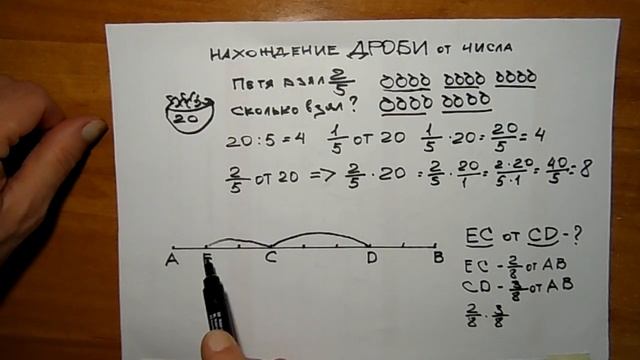 НАХОЖДЕНИЕ ДРОБИ ОТ ЧИСЛА
ПЕТЯ ВЗЯЛ 2/5
СКОЛЬКО ВЗЯЛ?
20
20 : 5 = 4 1/5 ОТ 20 1/5 · 20 = 20/5 = 4
2/5 ОТ 20 => 2/5 · 20 = 2/5 · 20/1 = 2·20/5·1 = 40/5 = 8
A E C D B
EC ОТ CD - ?
EC - 2/8 ОТ AB
CD - 3/8 ОТ AB
2/8 · 3/8